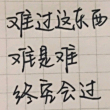 难过这东西
难是难
终究会过